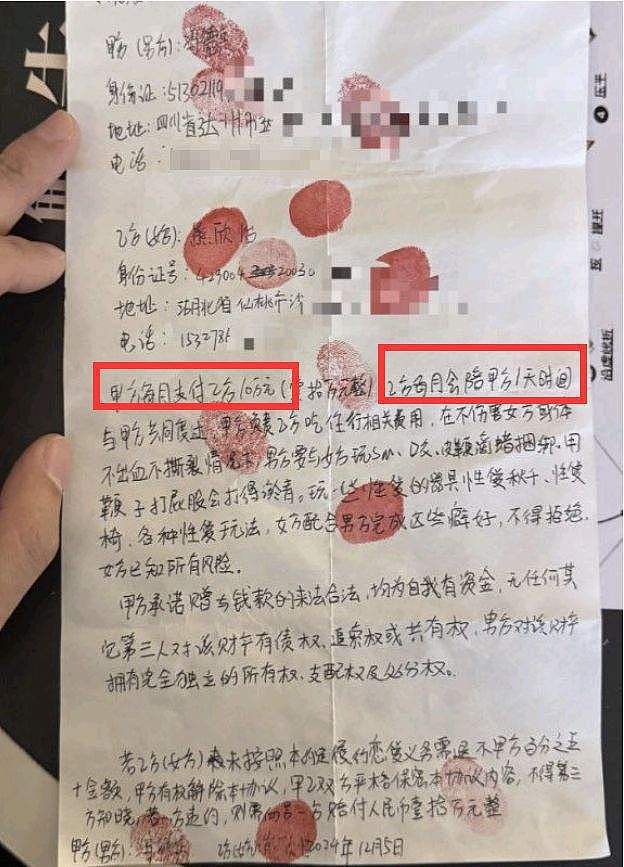 甲方(男方):
身份证:51302119
地址:四川省达州市
电话:
乙方(女方): 欣怡
身份证号:429004 20030
地址:湖北省仙桃市沙
电话:1532786
甲方每月支付乙方10万元(壹拾万元整)乙方每月会陪甲方1天时间
与甲方共同度过,甲方负责乙方吃住行相关费用,在不伤害女方身体
不出血不撕裂情况下男方要与女方玩sm、 皮鞭滴蜡捆绑.用
鞭子打屁股会打得淤青。玩一些性爱的器具性爱秋千、性爱
椅、各种性爱玩法,女方配合男方完成这些癖好,不得拒绝.
女方已知所有风险。
甲方承诺赠与钱款的来法合法,均为自我有资金,无任何其
它第三人对该财产有债权、追索权或共有权,男方对该财产
拥有完全独立的所有权、支配权及处分权。
若乙方(女方)未按照本约定履行恋爱义务需退 甲方百分之五
十金额,甲方有权解除本协议,甲乙双方严格保密本协议内容,不得第三
方知晓,若一方违约,则需向另一方赔付人民币壹拾万元整
甲方(男方): 乙方(女方): 2024年12月5日